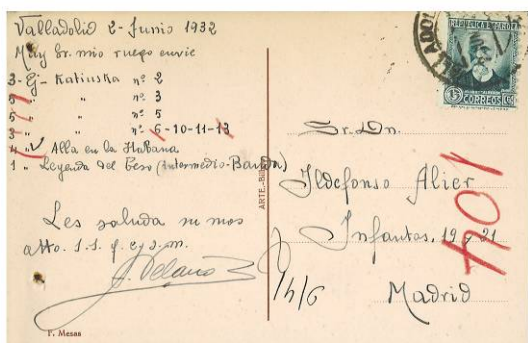 Valladolid 2-Junio 1932
Muy Sr. mio ruego envie
3 - Ej - Katiuska nº 2
5 " " nº 3
5 " " nº 5
3 " " nº 6-10-11-13
4 " Alla en la Habana
1 " Leyenda del Beso (Intermedio-Banda)
Les saluda su mas
atto. s.s. q. e. s. m.
P. Mesas
ARTE.-Bilbao
REPUBLICA ESPAÑOLA
15 CORREOS Cts
Sr. Dn.
Ildefonso Alier
Infantas, 19 y 21
Madrid
1/6